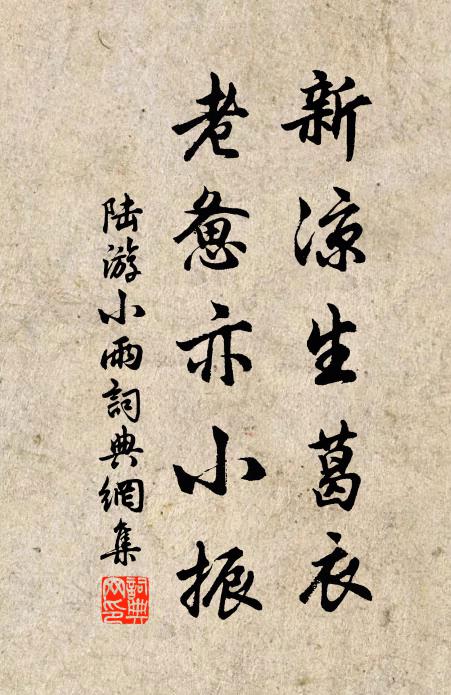 新涼生葛衣
老惫亦小振
陆游小雨詞典網集
詞典网印